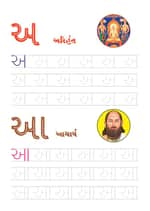 અ અરિહંત
અ અ અ અ અ અ
અ અ અ અ અ અ
અ અ અ અ અ અ
આ આચાર્ય
આ આ આ આ આ
આ આ આ આ આ
આ આ આ આ આ